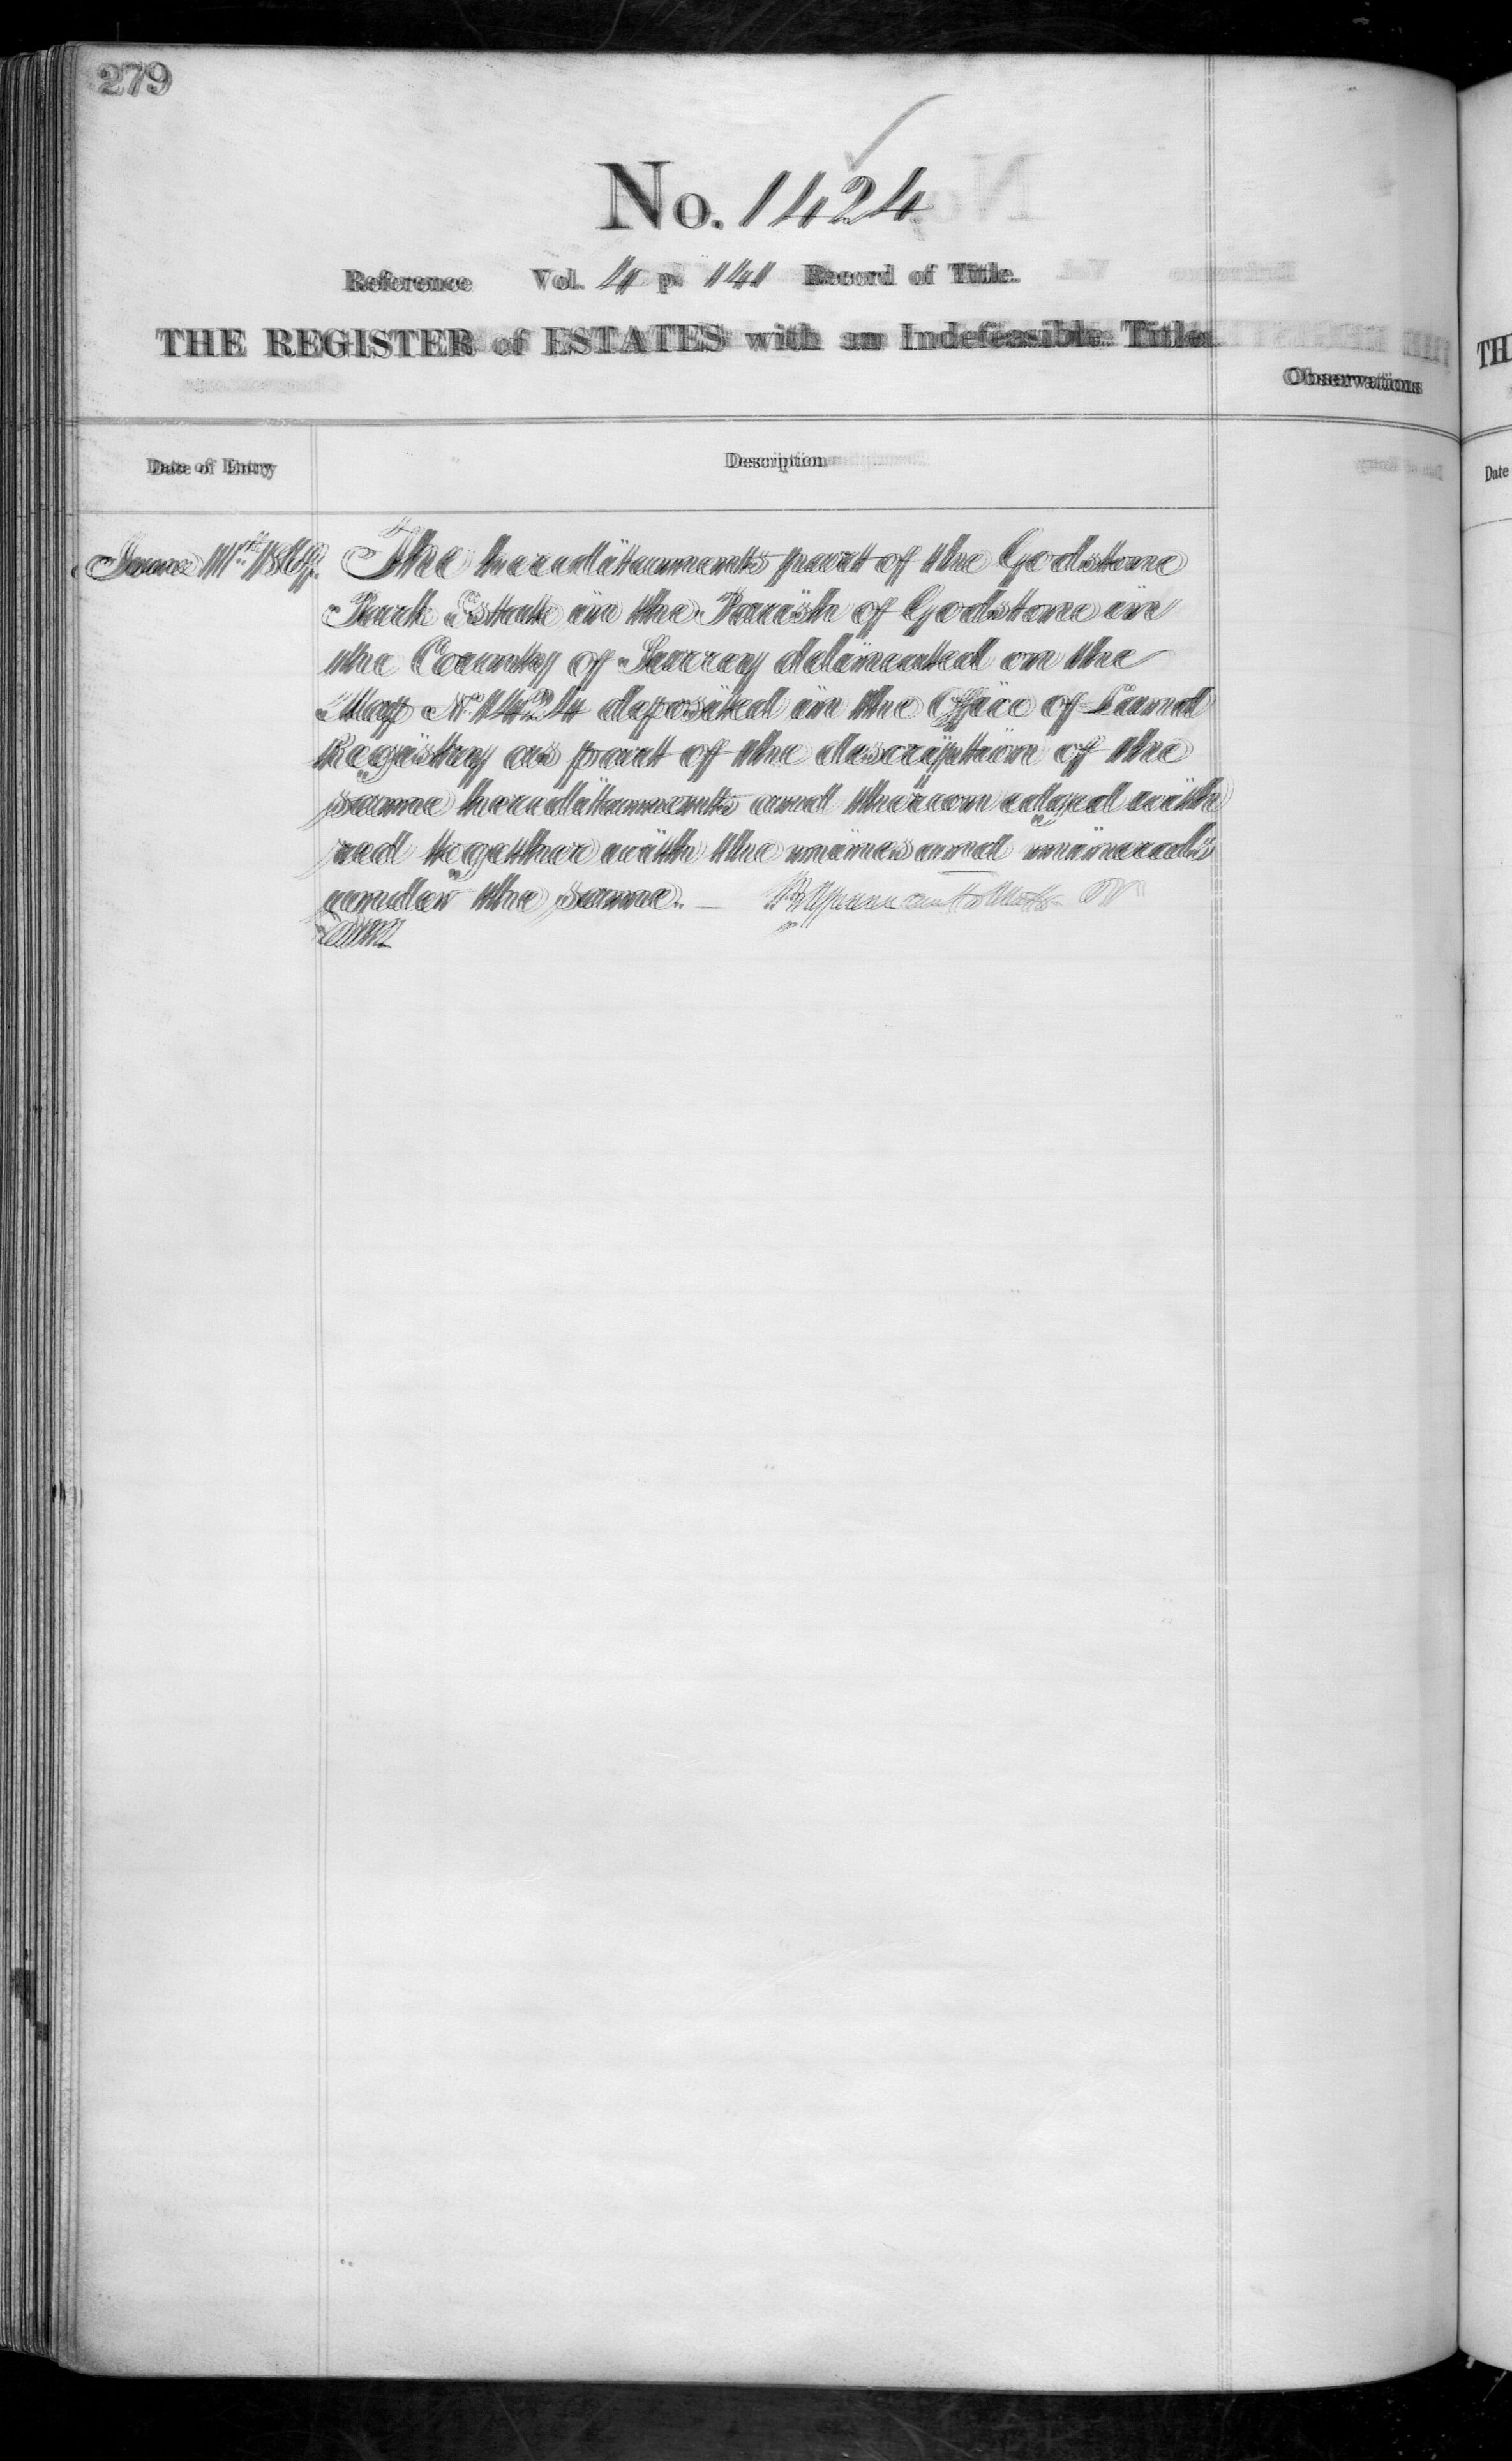 279
No. 1424
Reference Vol. 4 p. 141 Record of Title.
THE REGISTER of ESTATES with an Indefeasible Title.
Observations
Date of Entry
Description
June
The hereditaments part of the Godstone
Park Estate in the Parish of Godstone in
the County of Surrey delineated on the
Map No. 1424 deposited in the Office of Land
Registry as part of the description of the
same hereditaments and thereon edged with
red together with the mines and minerals
under the same. —
TH
Date